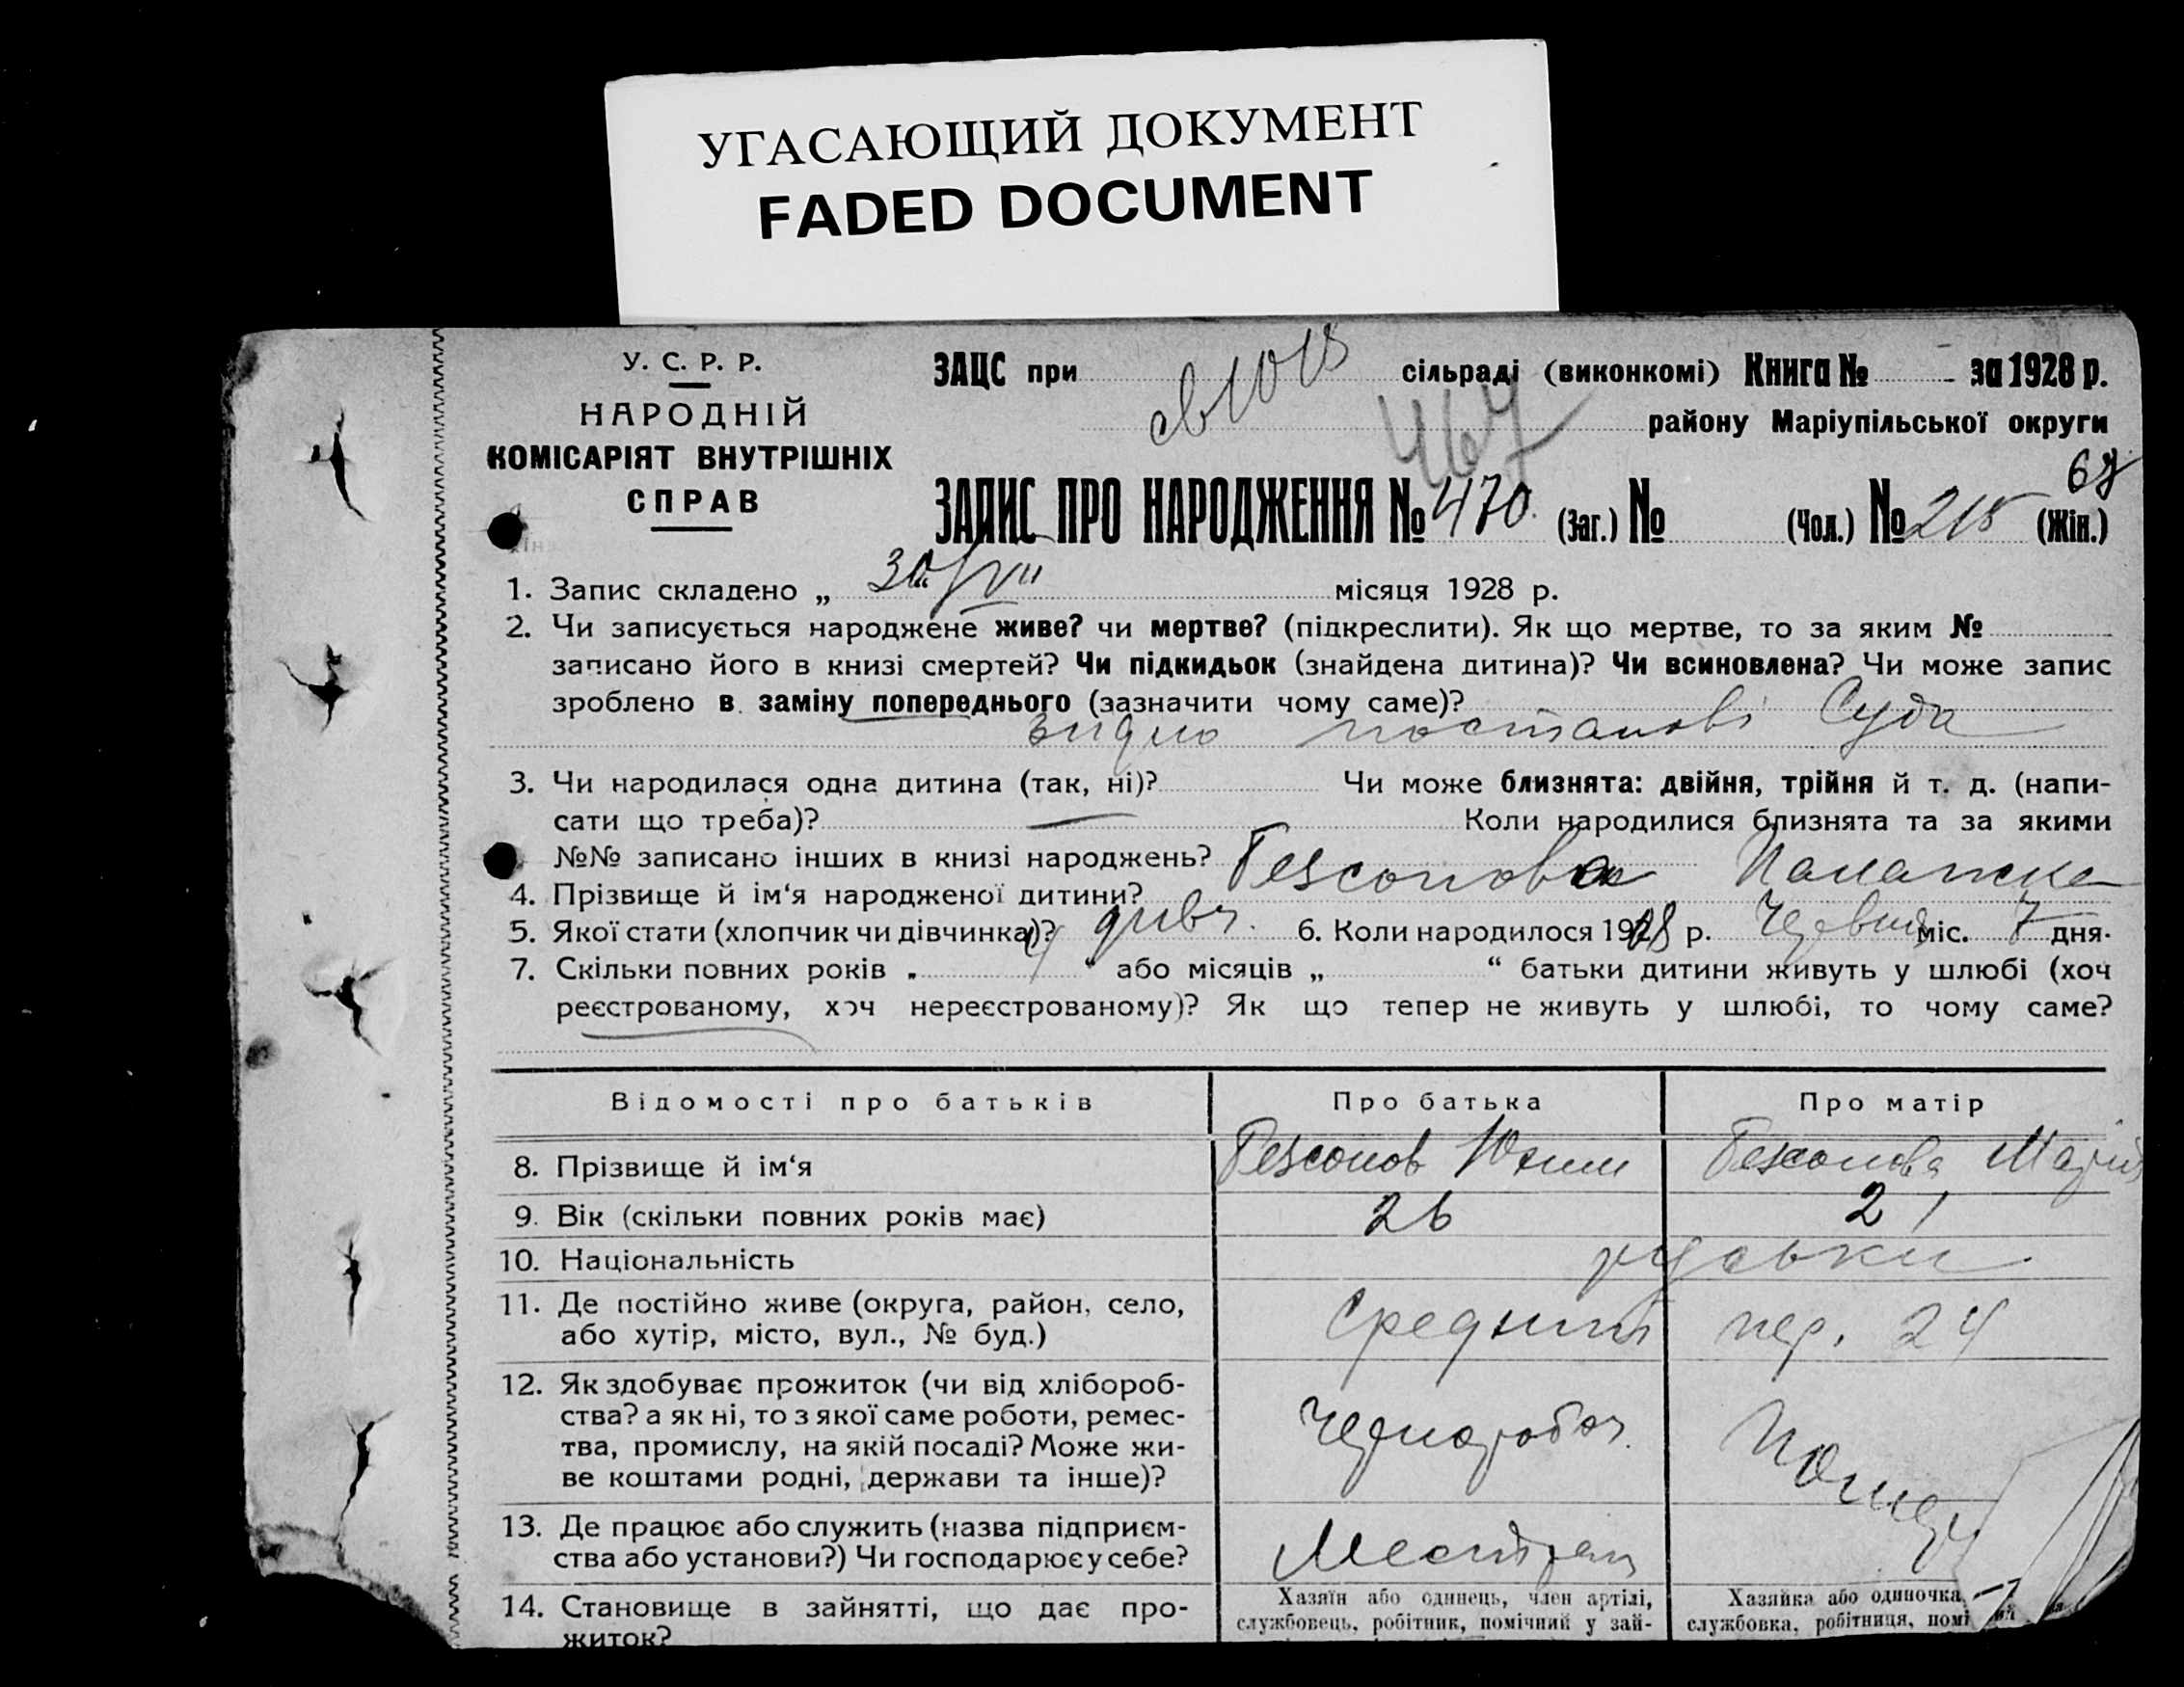 УГАСАЮЩИЙ ДОКУМЕНТ
FADED DOCUMENT
У. С. Р. Р.
НАРОДНІЙ
КОМІСАРІЯТ ВНУТРІШНІХ
СПРАВ
ЗАЦС при сільраді (виконкомі) Книга № за 1928 р.
району Маріупільської округи
467
68
ЗАПИС ПРО НАРОДЖЕННЯ № 470 (Заг.) № (Чол.) № 215 (Жін.)
1. Запис складено „ 30/VII місяця 1928 р.
2. Чи записується народжене живе? чи мертве? (підкреслити). Як що мертве, то за яким №
записано його в книзі смертей? Чи підкидьок (знайдена дитина)? Чи всиновлена? Чи може запис
зроблено в заміну попереднього (зазначити чому саме)?
згідно постанові Суда
3. Чи народилася одна дитина (так, ні)? Чи може близнята: двійня, трійня й т. д. (напи-
сати що треба)? Коли народилися близнята та за якими
№№ записано інших в книзі народжень?
4. Прізвище й ім‘я народженої дитини? Безсонова
5. Якої стати (хлопчик чи дівчинка)? дивч. 6. Коли народилося 1928 р. Червня міс. 7 дня.
7. Скільки повних років „ 4 “ або місяців „ “ батьки дитини живуть у шлюбі (хоч
реєстрованому, хоч нереєстрованому)? Як що тепер не живуть у шлюбі, то чому саме?
Відомості про батьків Про батька Про матір
8. Прізвище й ім‘я Безсонов Юхим Безсонова Марія
9. Вік (скільки повних років має) 26 21
10. Національність руськи
11. Де постійно живе (округа, район, село,
або хутір, місто, вул., № буд.) Средний пер. 24
12. Як здобуває прожиток (чи від хлібороб-
ства? а як ні, то з якої саме роботи, ремес-
тва, промислу, на якій посаді? Може жи-
ве коштами родні, держави та інше)? Чернороб
13. Де працює або служить (назва підприєм-
ства або установи?) Чи господарює у себе?
14. Становище в зайнятті, що дає про-
житок?
Хазяїн або одинець, член артілі,
службовець, робітник, помічний у зай-
Хазяйка або одиночка
службовка, робітниця, помі